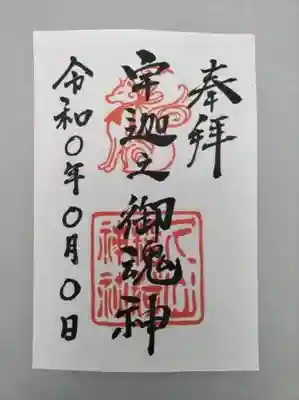 奉拝
宇迦之御魂神
令和〇年〇月〇日